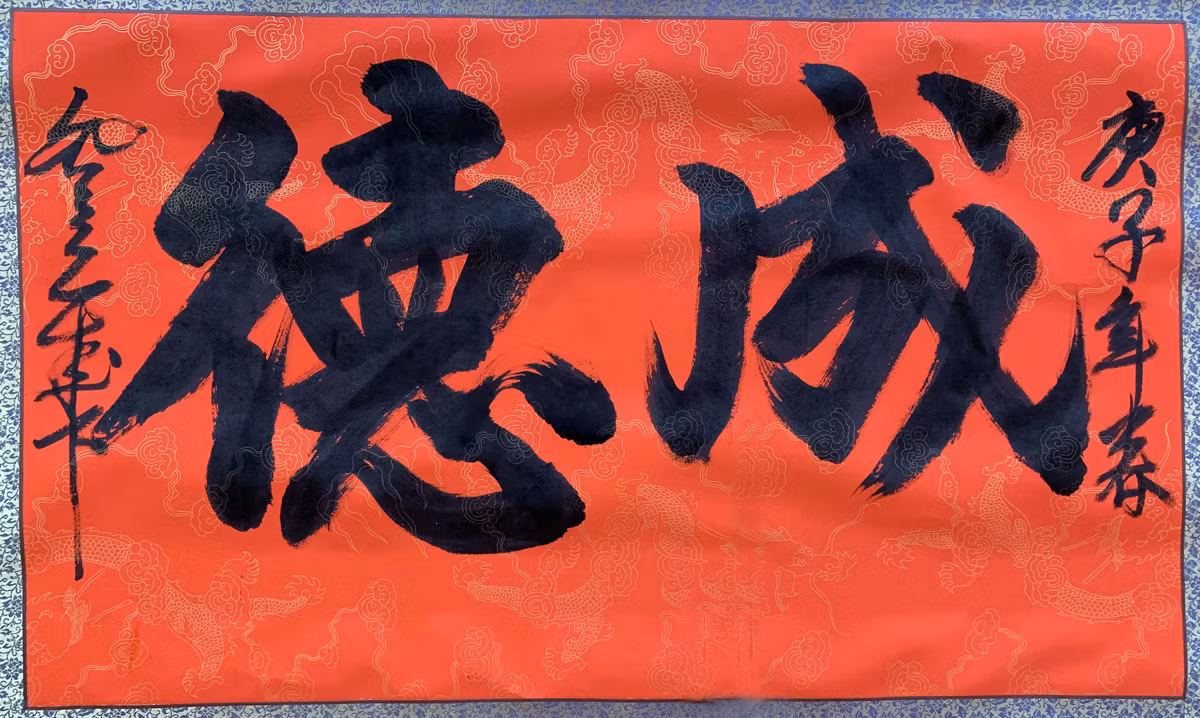 庚子年春
成德